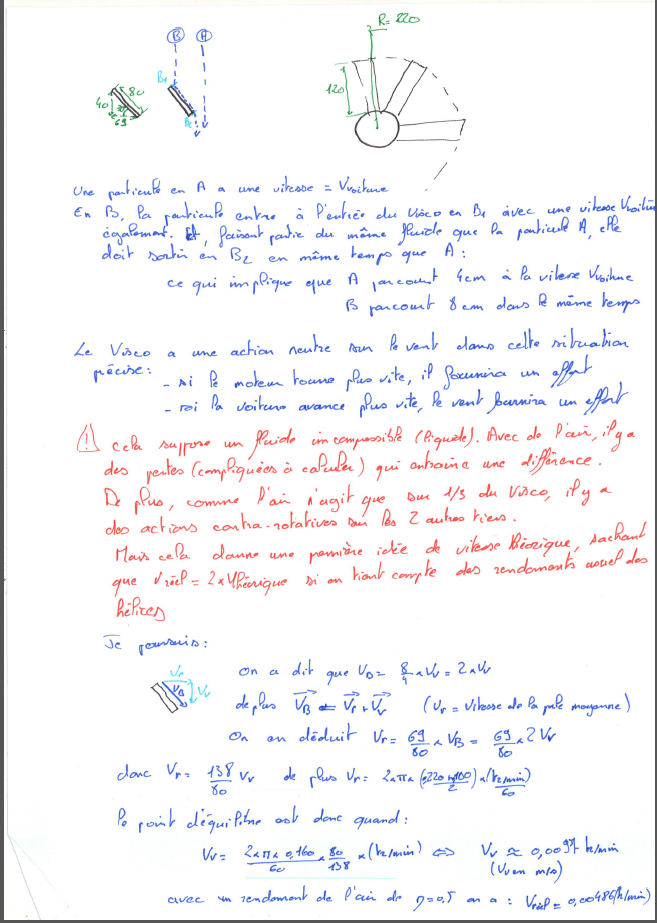 R=220
B A
B1
80
40
30
69
B2
120
Une particule en A a une vitesse = Vvoiture
En B, la particule entre à l'entrée du Visco en B1 avec une vitesse Vvoiture
également. Et, faisant partie du même fluide que la particule A, elle
doit sortir en B2 en même temps que A :
ce qui implique que A parcourt 4cm à la vitesse Vvoiture
B parcourt 8cm dans le même temps
Le Visco a une action neutre sur le vent dans cette situation
précise :
- si le moteur tourne plus vite, il fournira un effort
- si la voiture avance plus vite, le vent fournira un effort
! cela suppose un fluide incompressible (liquide). Avec de l'air, il y a
des pertes (compliquées à calculer) qui entraine une différence.
De plus, comme l'air n'agit que sur 1/3 du Visco, il y a
des actions contra-rotatives sur les 2 autres tiers.
Mais cela donne une première idée de vitesse théorique, sachant
que Vréel = 2 x Vthéorique si on tient compte des rendements usuel des
hélices
Je poursuis :
Vr VB Vv
On a dit que VB = 8/4 x Vv = 2 x Vv
de plus VB = Vr + Vv (Vr = vitesse de la pale moyenne)
On en déduit Vr = 69/80 x VB = 69/80 x 2 Vv
donc Vr = 138/80 Vv de plus Vr = 2 x π x (0,220+0,100)/2 x (tr/min)/60
le point d'équilibre est donc quand :
Vv = 2 x π x 0,160/60 x 80/138 x (tr/min) ⇔ Vv ≈ 0,0097 tr/min
(Vv en m/s)
avec un rendement de l'air de η=0,5 on a : Vréel = 0,00486(tr/min)